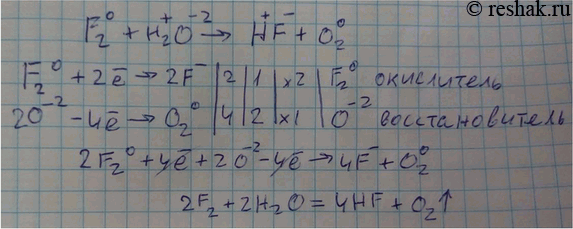 © reshak.ru
F₂⁰ + H₂⁺O⁻² → H⁺F⁻ + O₂⁰
F₂⁰ + 2ē → 2F⁻ | 2 | 1 | x2 | F₂⁰ окислитель
2O⁻² - 4ē → O₂⁰ | 4 | 2 | x1 | O⁻² восстановитель
2F₂⁰ + 4ē + 2O⁻² - 4ē → 4F⁻ + O₂⁰
2F₂ + 2H₂O = 4HF + O₂↑